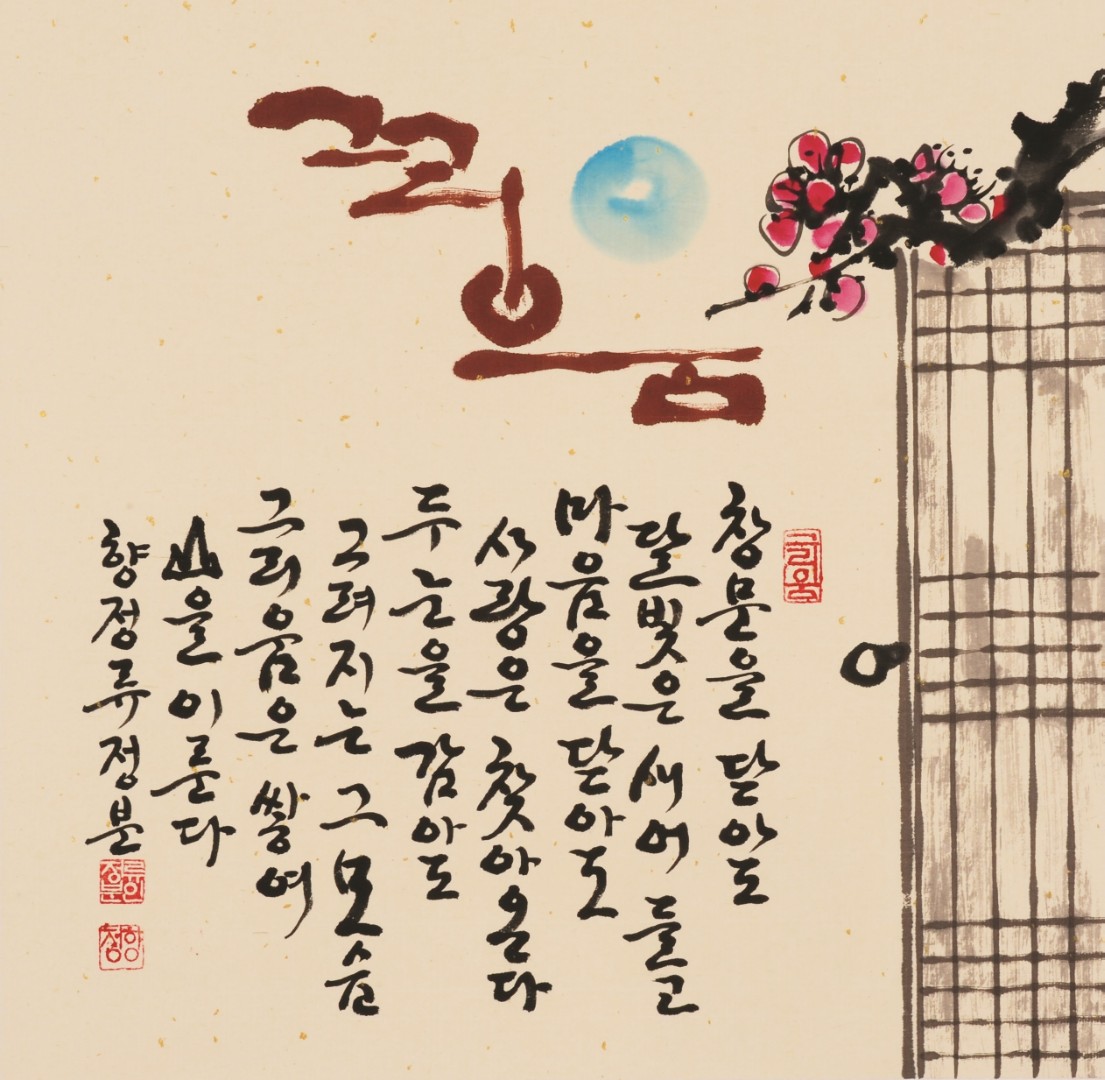 그리움
창문을 닫아도
달빛은 새어 들고
마음을 닫아도
사랑은 찾아온다
두 눈을 감아도
그려지는 그 모습
그리움은 쌓여
山을 이룬다
향정 류정분
류정분
향정